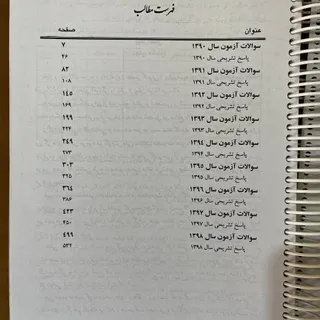 فهرست مطالب
عنوان صفحه
سوالات آزمون سال ۱۳۹۰ ۷
پاسخ تشریحی سال ۱۳۹۰ ۲۶
سوالات آزمون سال ۱۳۹۱ ۸۲
پاسخ تشریحی سال ۱۳۹۱ ۱۰۸
سوالات آزمون سال ۱۳۹۲ ۱۴۵
پاسخ تشریحی سال ۱۳۹۲ ۱۶۹
سوالات آزمون سال ۱۳۹۳ ۱۹۹
پاسخ تشریحی سال ۱۳۹۳ ۲۲۶
سوالات آزمون سال ۱۳۹۴ ۲۴۹
پاسخ تشریحی سال ۱۳۹۴ ۲۷۳
سوالات آزمون سال ۱۳۹۵ ۳۰۳
پاسخ تشریحی سال ۱۳۹۵ ۳۲۵
سوالات آزمون سال ۱۳۹۶ ۳۶۴
پاسخ تشریحی سال ۱۳۹۶ ۳۸۶
سوالات آزمون سال ۱۳۹۷ ۴۲۳
پاسخ تشریحی سال ۱۳۹۷ ۴۵۰
سوالات آزمون سال ۱۳۹۸ ۴۹۹
پاسخ تشریحی سال ۱۳۹۸ ۵۳۲